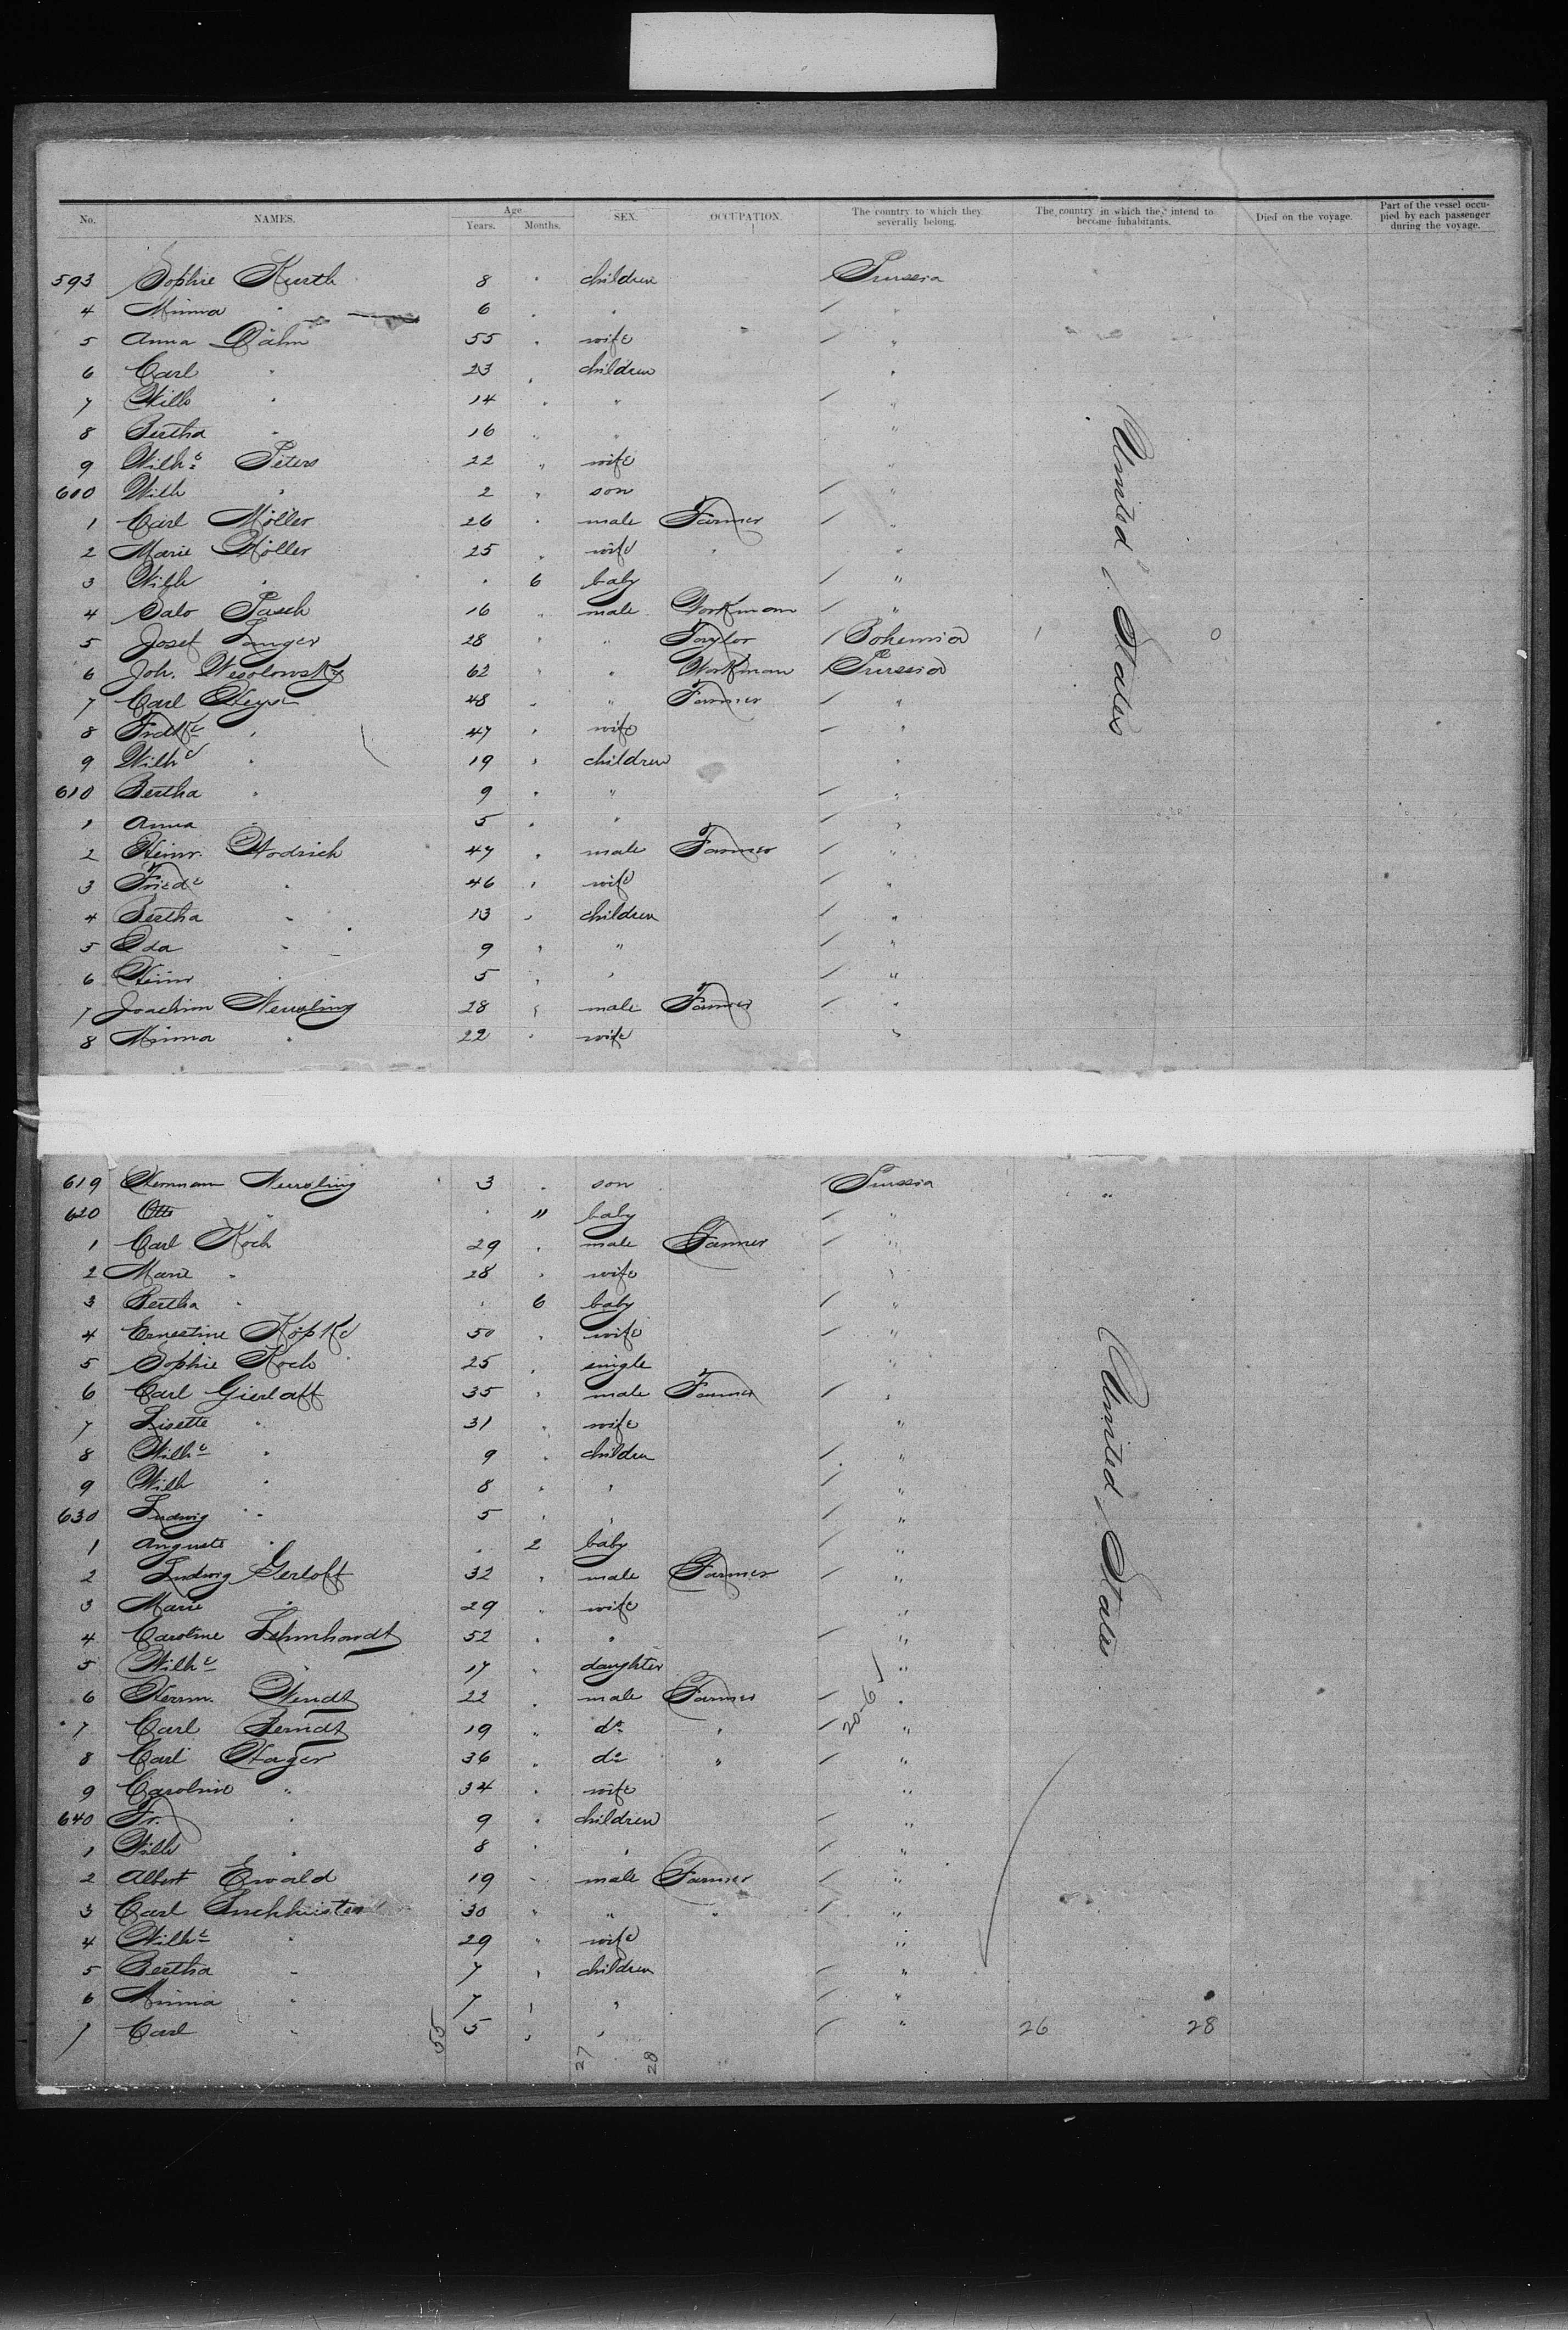 No. NAMES. Age Years. Months. SEX. OCCUPATION. The country to which they severally belong. The country in which they intend to become inhabitants. Died on the voyage. Part of the vessel occupied by each passenger during the voyage.
593 Sophie Kurth 8 " children Prussia
4 Minna " 6 " " "
5 Anna Dähn 55 " wife "
6 Carl " 23 " children "
7 Wilh " 14 " " "
8 Bertha " 16 " " "
9 Wilhe Peters 22 " wife "
600 Wilh " 2 " son "
1 Carl Möller 26 " male Farmer "
2 Marie Möller 25 " wife " "
3 Wilh " " 6 baby "
4 Salo Pasch 16 " male Workmann "
5 Josef Langer 28 " " Taylor Bohemia
6 Joh. Wesolowsky 62 " " Workman Prussia
7 Carl 48 " " Farmer "
8 Fredke " 47 " wife "
9 Wilhe " 19 " children "
610 Bertha " 9 " " "
1 Anna " 5 " " "
2 Heinr. Wodrich 47 " male Farmer "
3 Friede " 46 " wife "
4 Bertha " 13 " children "
5 Ida " 9 " " "
6 Heinr " 5 " " "
7 Joachim 28 " male Farmer "
8 Minna " 22 " wife "
United States
619 Hermann 3 " son Prussia "
620 Otto " " 11 baby "
1 Carl Koch 29 " male Farmer "
2 Marie " 28 " wife "
3 Bertha " " 6 baby "
4 Ernestine Köpke 50 " wife "
5 Sophie Koch 25 " single "
6 Carl Gierlaff 35 " male Farmer "
7 Lisette " 31 " wife "
8 Wilhe " 9 " children "
9 Wilh " 8 " " "
630 Ludwig " 5 " " "
1 Auguste " " 2 baby "
2 Ludwig Gerloff 32 " male Farmer "
3 Marie " 29 " wife "
4 Caroline 52 " " "
5 Wilhe " 17 " daughter "
6 Herm. Wendt 22 " male Farmer "
7 Carl Berndt 19 " do " "
8 Carl Hager 36 " do " "
9 Caroline " 34 " wife "
640 Fr. " 9 " children "
1 Wilh " 8 " " "
2 Albert Ewald 19 " male Farmer "
3 Carl 30 " " " "
4 Wilhe " 29 " wife "
5 Bertha " 7 " children "
6 Minna " 7 " " "
7 Carl " 5 " " "
United States
20-6
26 28
55 27 28